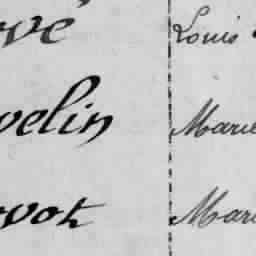 vé Louis
velin Marie
vot Mari